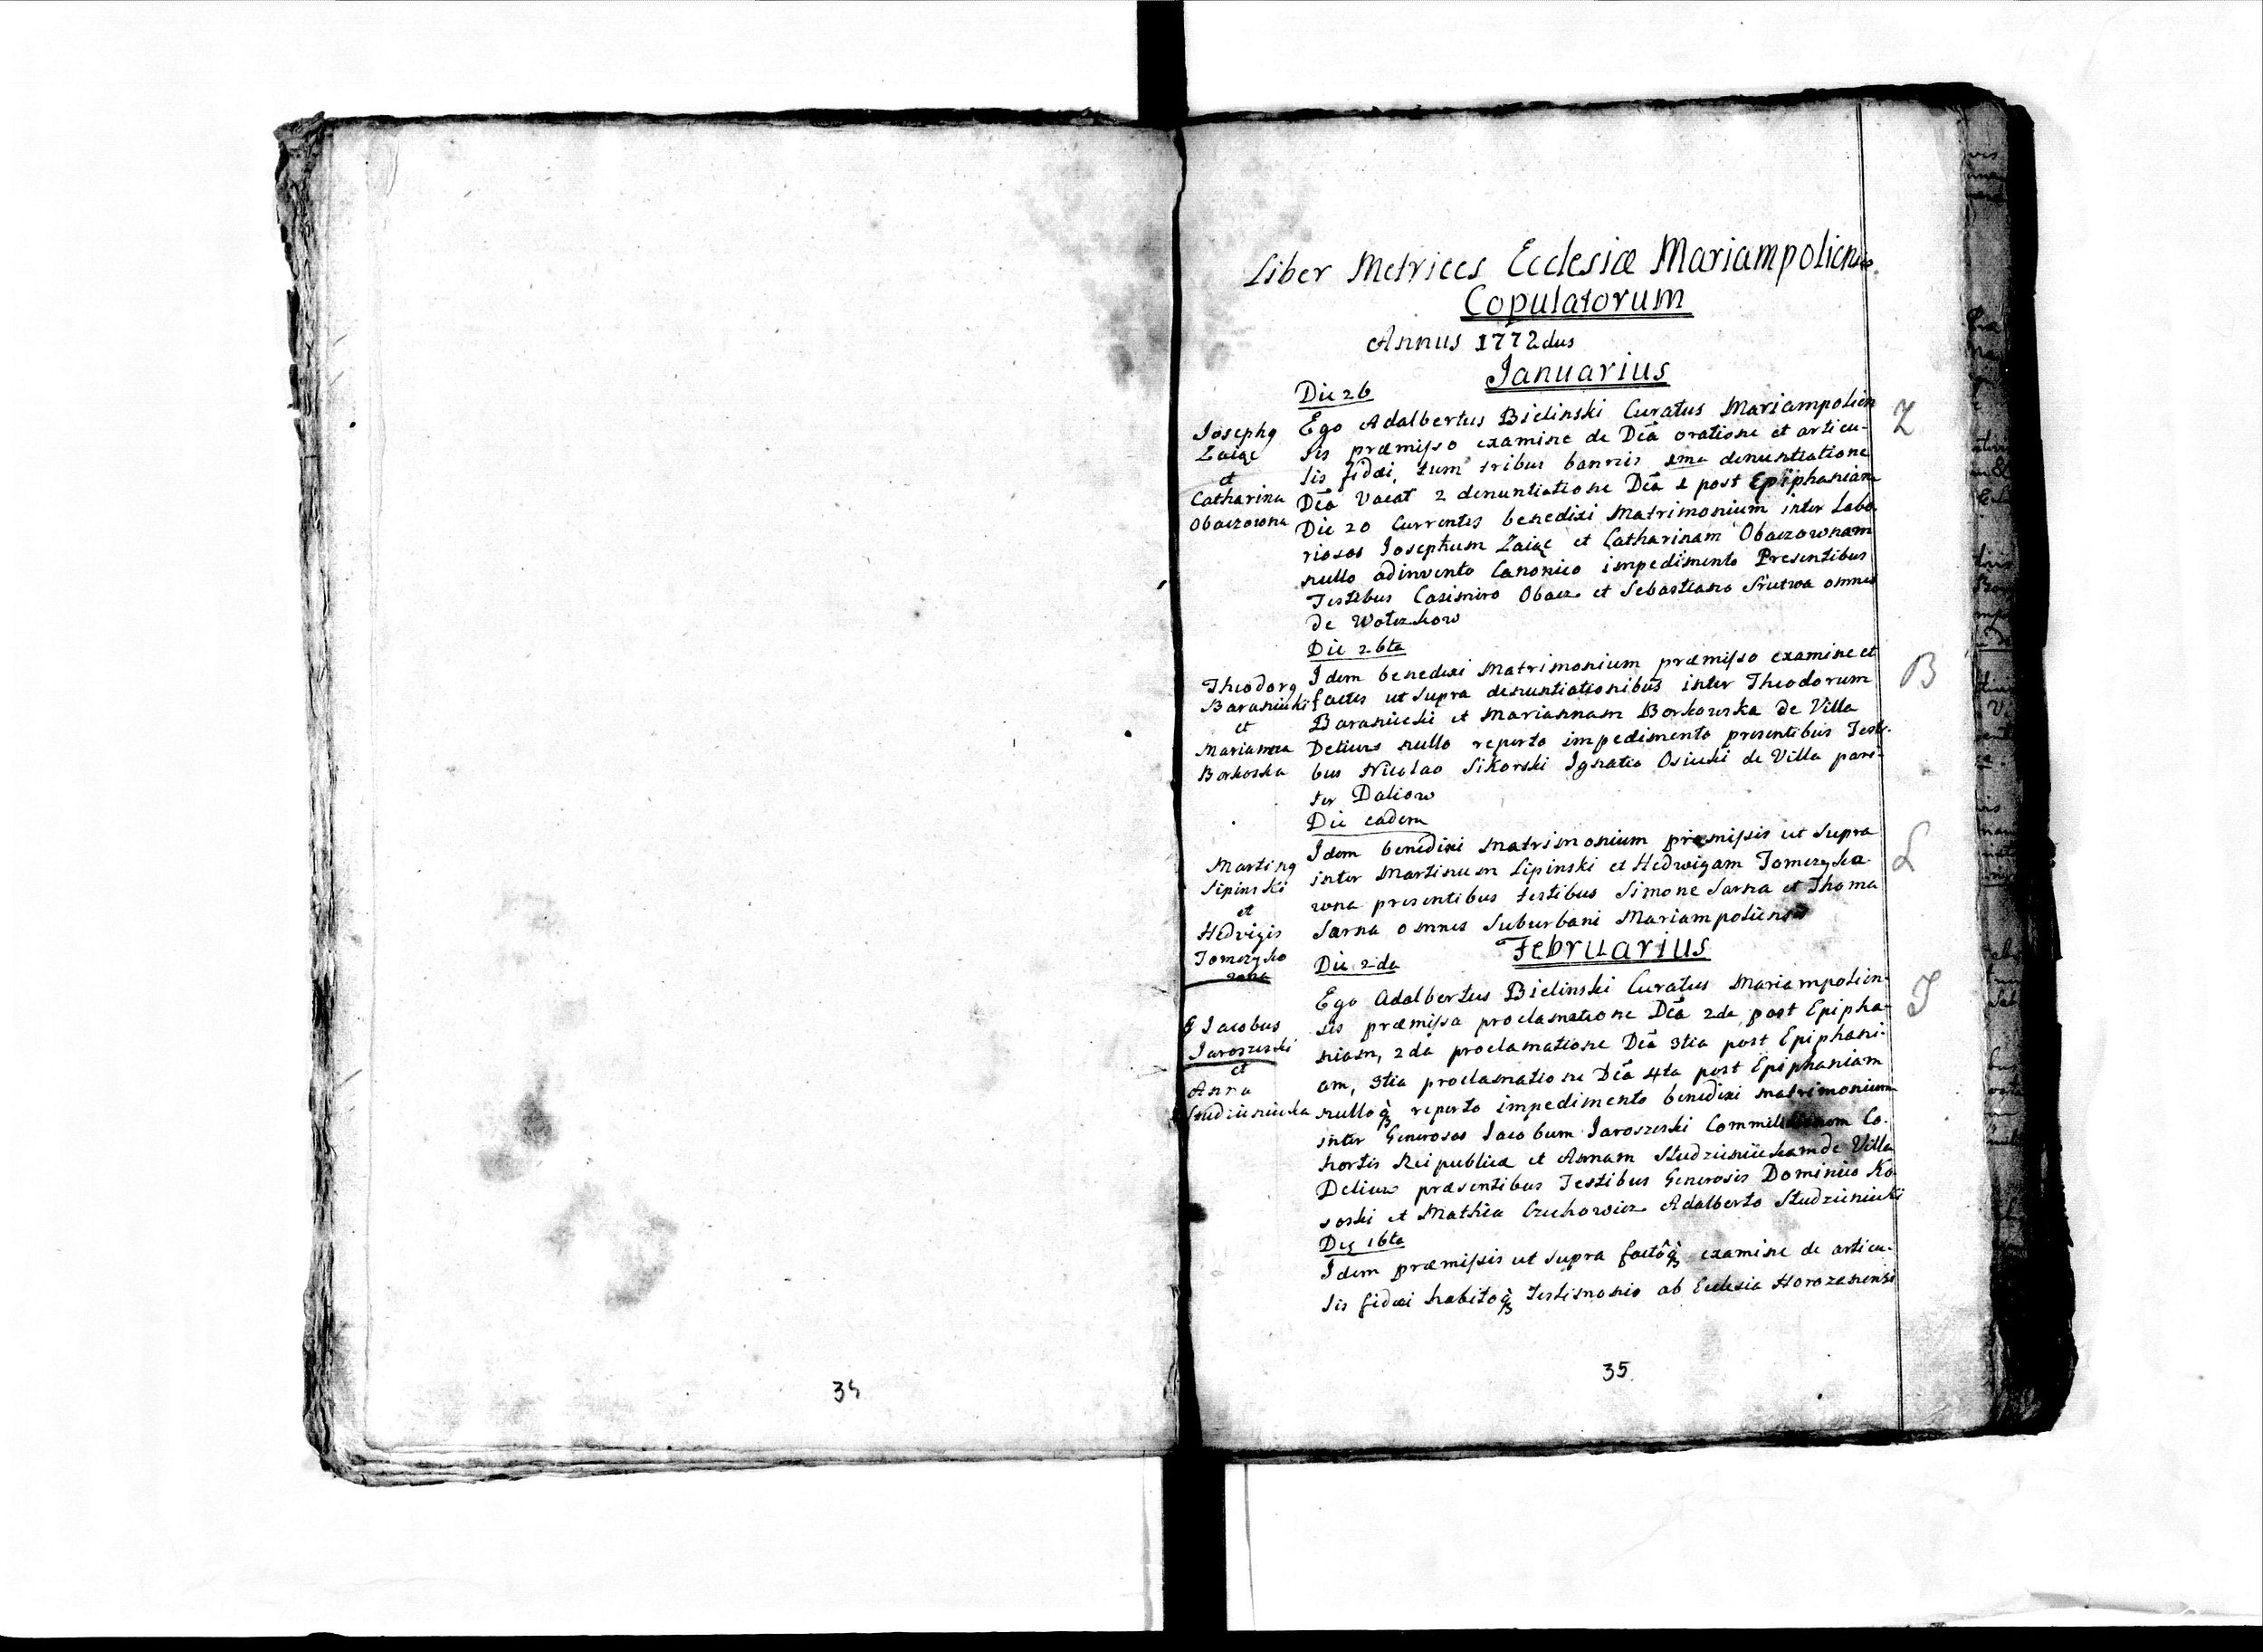 Liber Metrices Ecclesiæ Mariampoliensis
Copulatorum
Annus 1772dus
Januarius
Die 26
Josephq
Zaiąc
et
Catharina
Obaczowna
Ego Adalbertus Bielinski Curatus Mariampolien
sis præmisso examine de Dca oratione et articu-
lis fidei, tum tribus bannis 1ma denuntiatione
Dca Vacat 2 denuntiatione Dca 1 post Epiphaniam
Die 20 Currentis benedixi Matrimonium inter Labo
riosos Josephum Zaiąc et Catharinam Obaczownam
nullo adinvento Canonico impedimento Presentibus
Testibus Casimiro Obacz et Sebastiano omnes
de Wołczkow
Z
Die 26ta
Theodorq
Baraniecki
et
Marianna
Borkoska
Idem benedixi Matrimonium præmisso examine et
factis ut supra denuntiationibus inter Theodorum
Baraniecki et Mariannam Borkowska de Villa
Deliow nullo reperto impedimento presentibus Testi-
bus Nicolao Sikorski Ignatio Osiecki de Villa pari-
ter Daliow
B
Die eadem
Martinq
Lipinski
et
Hedvigis
Tomczyko
wna
Idem benedixi matrimonium præmissis ut supra
inter Martinum Lipinski et Hedwigam Tomczyko
wna presentibus testibus Simone Sarna et Thoma
Sarna omnes Suburbani Mariampoliensis
L
Februarius
Die 2da
G Jacobus
Jaroszeski
et
Anna
Studzieniecka
Ego Adalbertus Bielinski Curatus Mariampolien-
sis præmissa proclamatione Dca 2da post Epipha-
niam, 2da proclamatione Dca 3tia post Epiphani-
am, 3tia proclamatione Dca 4ta post Epiphaniam
nulloq reperto impedimento benedixi matrimonium
inter Generosos Jacobum Jaroszeski Commilitonem Co-
hortis Reipublicæ et Annam Studzienieckam de Villa
Deliow præsentibus Testibus Generosis Dominico Ko-
soski et Mathia Czechowicz Adalberto Studzieniecki
J
Die 16ta
Idem præmissis ut supra factoq examine de articu-
lis fidei habitoq testimonio ab Ecclesia Horozanensi
34
35